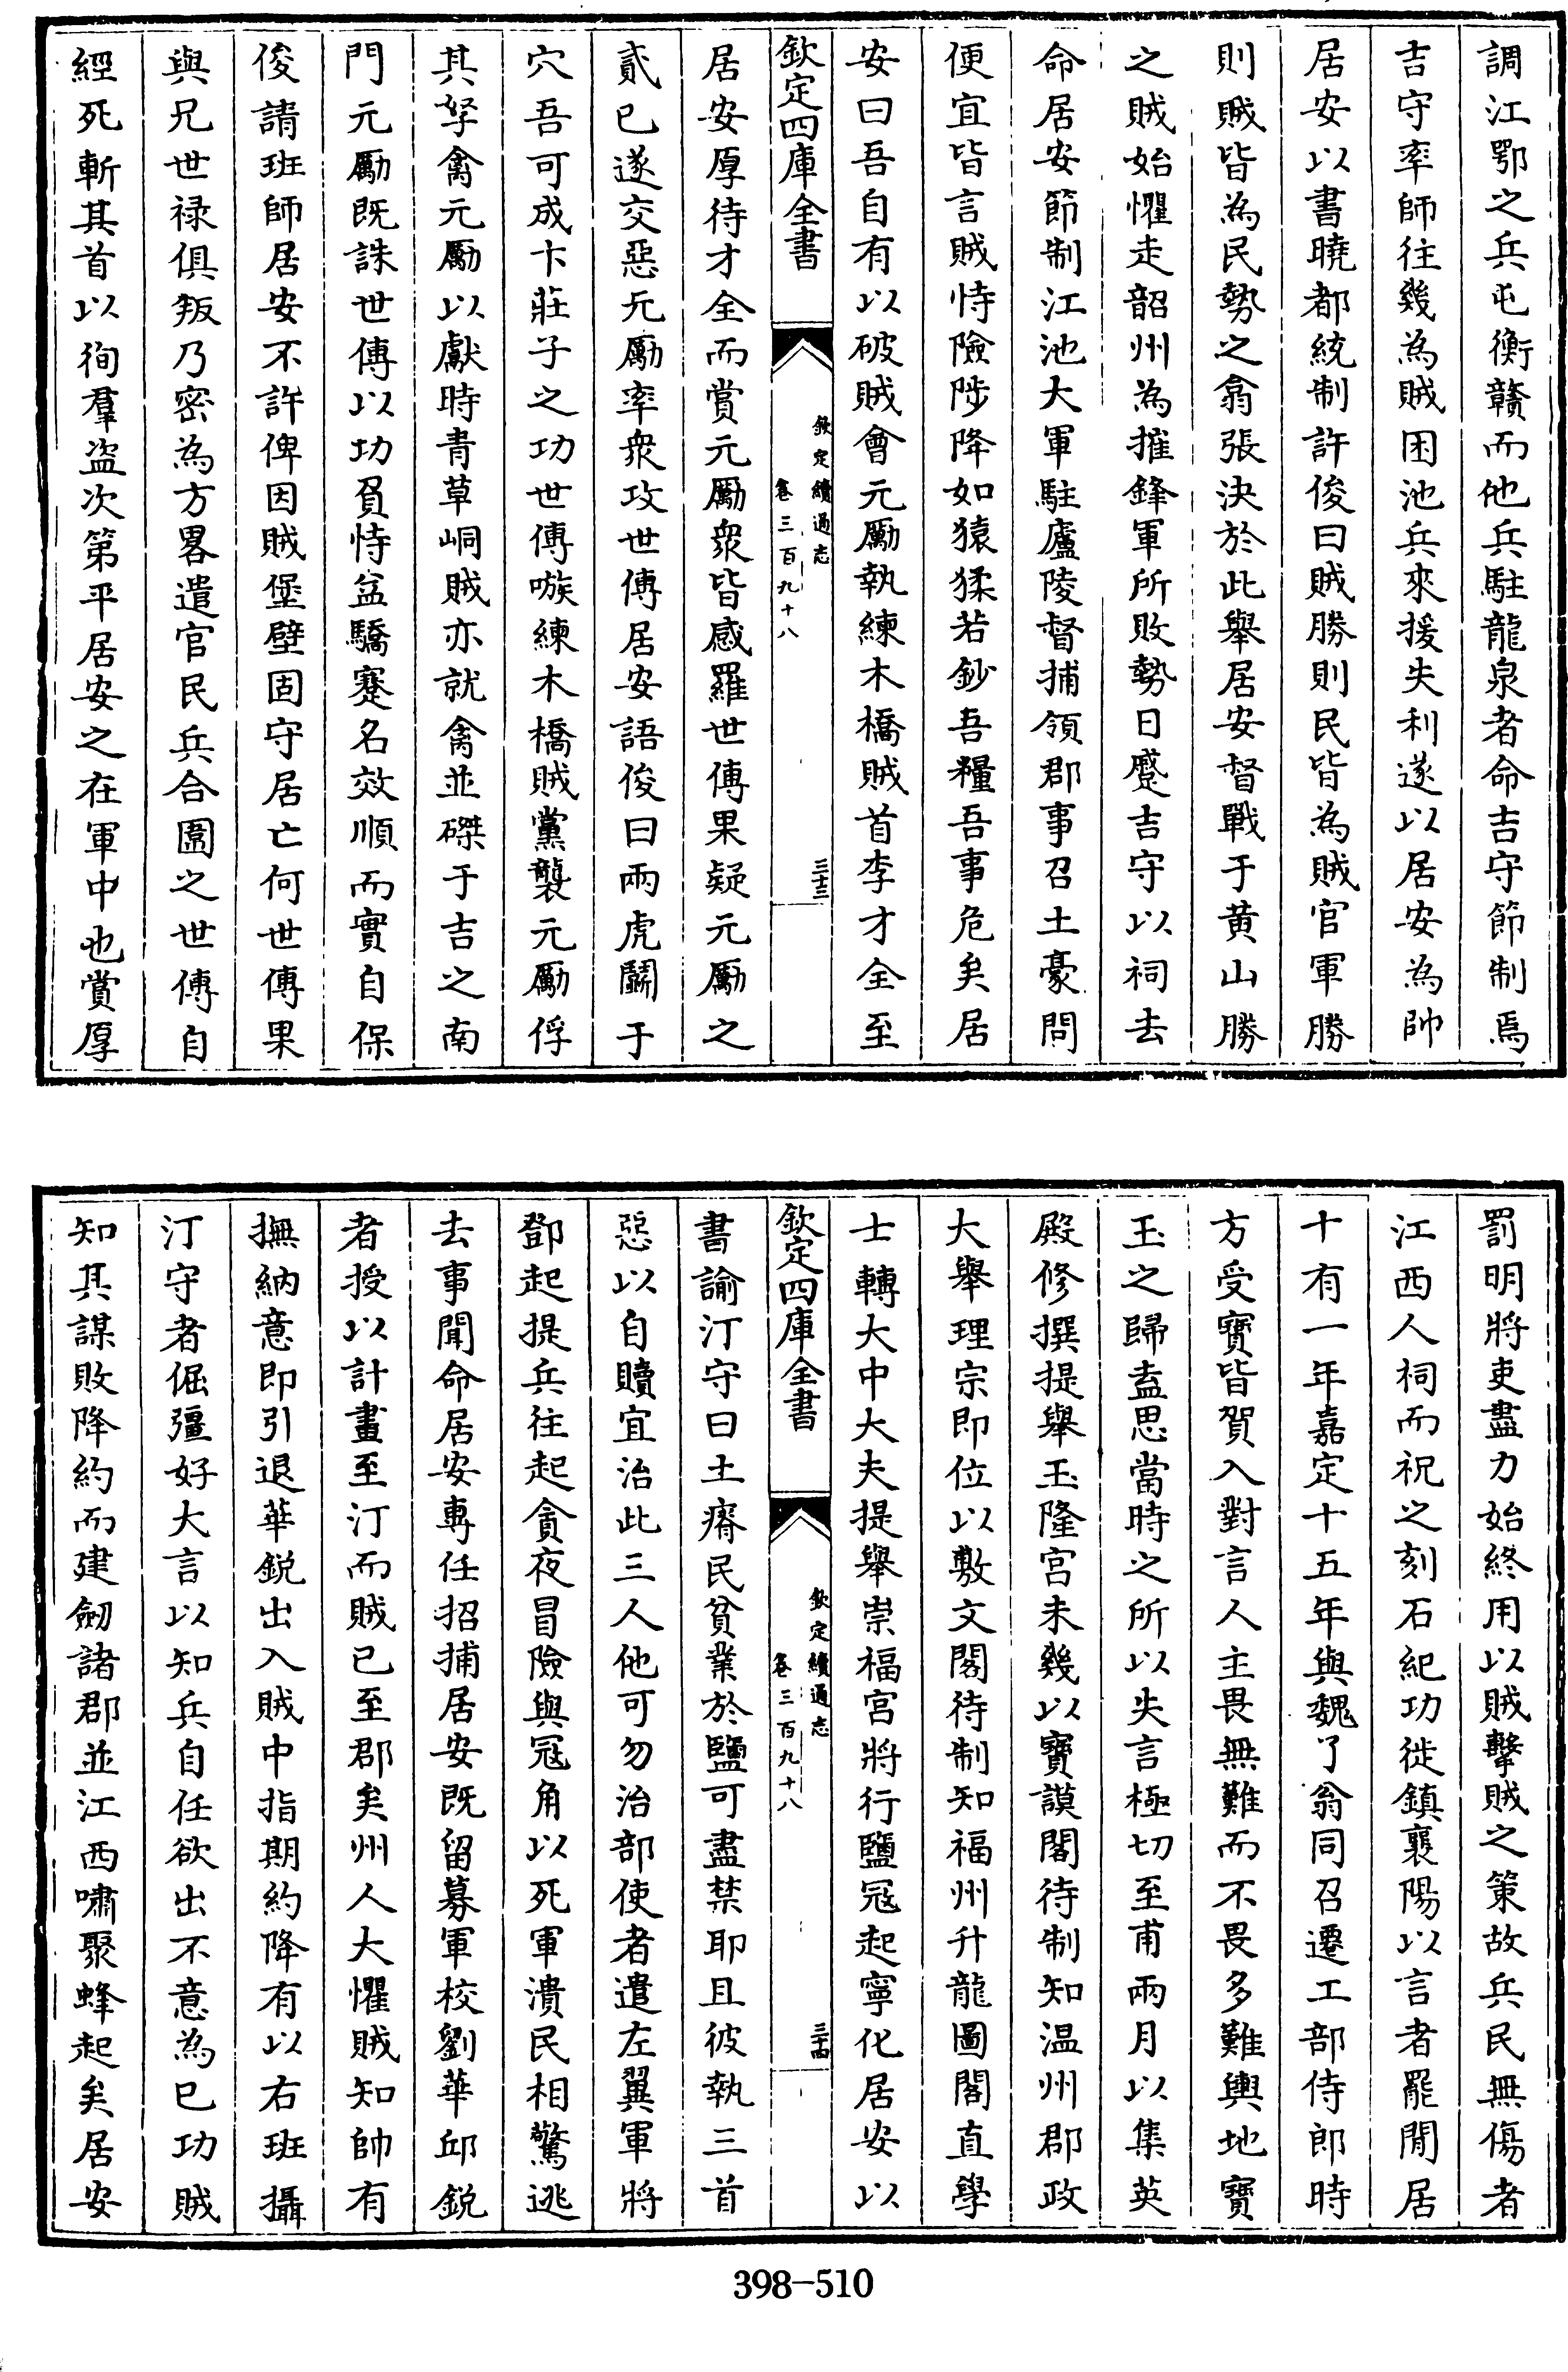 調江鄂之兵屯衡贛而他兵駐龍泉者命吉守節制焉
吉守率師往幾為賊困池兵來援失利遂以居安為帥
居安以書曉都統制許俊曰賊勝則民皆為賊官軍勝
則賊皆為民勢之翕張決於此舉居安督戰于黄山勝
之賊始懼走韶州為摧鋒軍所敗勢日蹙吉守以祠去
命居安節制江池大軍駐廬陵督捕領郡事召土豪問
便宜皆言賊恃險陟降如猿猱若鈔吾糧吾事危矣居
安曰吾自有以破賊會元勵執練木橋賊首李才全至
欽定四庫全書
欽定續通志
卷三百九十八
三十三
居安厚待才全而賞元勵衆皆感羅世傳果疑元勵之
貳已遂交惡元勵率衆攻世傳居安語俊曰兩虎鬭于
穴吾可成卞莊子之功世傳嗾練木橋賊黨襲元勵俘
其孥禽元勵以獻時青草峒賊亦就禽並磔于吉之南
門元勵既誅世傳以功負恃益驕蹇名效順而實自保
俊請班師居安不許俾因賊堡壁固守居亡何世傳果
與兄世禄俱叛乃密為方畧遣官民兵合圍之世傳自
經死斬其首以徇羣盜次第平居安之在軍中也賞厚
罰明將吏盡力始終用以賊擊賊之策故兵民無傷者
江西人祠而祝之刻石紀功徙鎮襄陽以言者罷閒居
十有一年嘉定十五年與魏了翁同召遷工部侍郎時
方受寶皆賀入對言人主畏無難而不畏多難輿地寶
玉之歸盍思當時之所以失言極切至甫兩月以集英
殿修撰提舉玉隆宫未幾以寶謨閣待制知温州郡政
大舉理宗即位以敷文閣待制知福州升龍圖閣直學
士轉大中大夫提舉崇福宫將行鹽冦起寧化居安以
欽定四庫全書
欽定續通志
卷三百九十八
三十四
書諭汀守曰土瘠民貧業於鹽可盡禁耶且彼執三首
惡以自贖宜治此三人他可勿治部使者遣左翼軍將
鄧起提兵往起貪夜冒險與冦角以死軍潰民相驚逃
去事聞命居安專任招捕居安既留募軍校劉華邱鋭
者授以計畫至汀而賊已至郡矣州人大懼賊知帥有
撫納意即引退華鋭出入賊中指期約降有以右班攝
汀守者倔彊好大言以知兵自任欲出不意為已功賊
知其謀敗降約而建劒諸郡並江西嘯聚蜂起矣居安
398-510